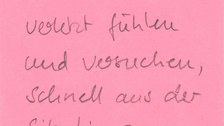 verletzt fühlen
und versuchen,
schnell aus der